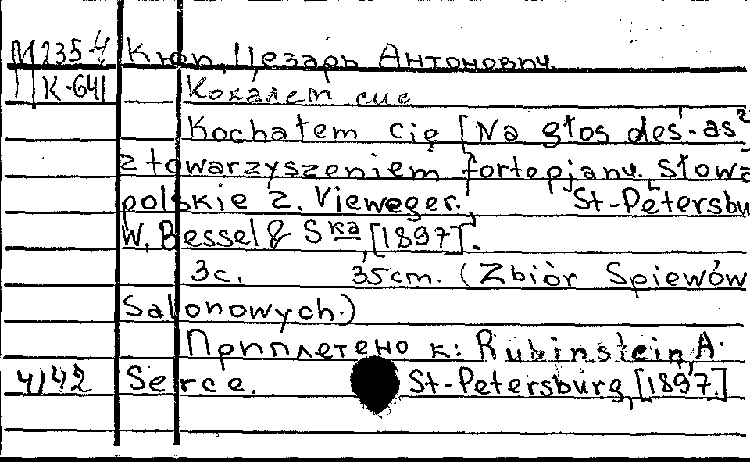 М235-4 Кюи, Цезарь Антонович.
К-641 Кохалем сие
Kochałem cię [Na głos des¹-as²
z towarzyszeniem fortepjanu. Słowa
polskie Z. Vieweger. St-Petersbu
W. Bessel & Ska, [1897].
3с. 35cm. (Zbiór Spiewów
Salonowych.)
Приплетено к: Rubinstein, A.
4142 Serce. St-Petersburg, [1897.]